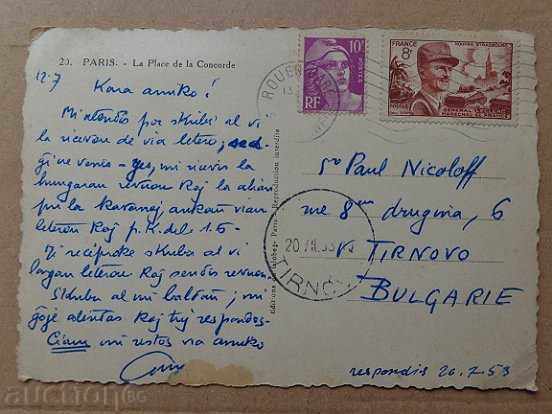 20. PARIS. - La Place de la Concorde
12.7
Kara amiko!
Mi atendis por skribi al vi
la ricevon de via letero, sed
ĝi ne venis - jes, mi ricevis la
hungaran revuon kaj la aliajn
pri la kaj ankaŭ vian
leteron kaj p.K. del 1.6-
Mi reciproke skribas al vi
longan leteron kaj sendos revuon.
Skribu al mi baldaŭ; mi
ĝoje atentas kaj tuj respondos-
Ciam mi restos via amiko
respondis 20.7.53
Editions - Paris - Reproduction interdite
10F
POSTES
RF
FRANCE
8F
ROUEN GARE
13
Sro Paul Nicoloff
rue 8em drugina, 6
TIRNOVO
BULGARIE
20.VII.53
TIRNOV